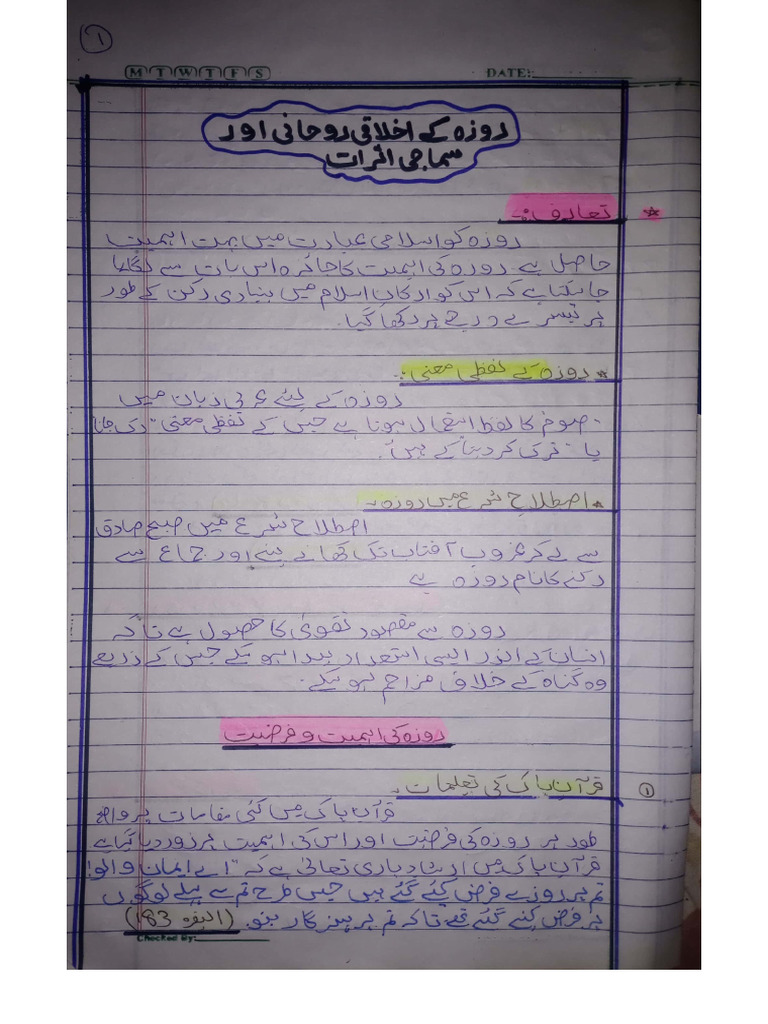 1
M T W T F S DATE:
روزہ کے اخلاقی روحانی اور
سماجی اثرات
تعارف:-
روزہ کو اسلامی عبادت میں بہت اہمیت
حاصل ہے۔ روزہ کی اہمیت کا جائزہ اس بات سے لگایا
جا سکتا ہے کہ اس کو ارکان اسلام میں بنیادی رکن کے طور
پر تیسرے درجے پر رکھا گیا۔
* روزہ کے لفظی معنی:-
روزہ کے لیئے عربی زبان میں
"صوم" کا لفظ استعمال ہوتا ہے جس کے لفظی معنی "رک جانا
یا "ترک کر دینا کے ہیں"۔
* اصطلاح شرع میں روزہ۔
اصطلاح شرع میں صبح صادق
سے لے کر غروب آفتاب تک کھانے پینے اور جماع سے
رکنے کا نام روزہ ہے
روزہ سے مقصود تقویٰ کا حصول ہے تاکہ
انسان کے اندر ایسی استعداد پیدا ہو سکے جس کے ذریعے
وہ گناہ کے خلاف مزاحم ہو سکے۔
روزہ کی اہمیت و فرضیت
1 قرآن پاک کی تعلیمات۔
قرآن پاک میں کئی مقامات پر واضح
طور پر روزہ کی فرضیت اور اس کی اہمیت پر زور دیا گیا ہے
قرآن پاک میں ارشاد باری تعالیٰ ہے کہ "اے ایمان والو!
تم پر روزے فرض کئے گئے ہیں جس طرح تم سے پہلے لوگوں
پر فرض کئے گئے تھے تاکہ تم پرہیز گار بنو۔ (البقرہ 183)
Checked By: